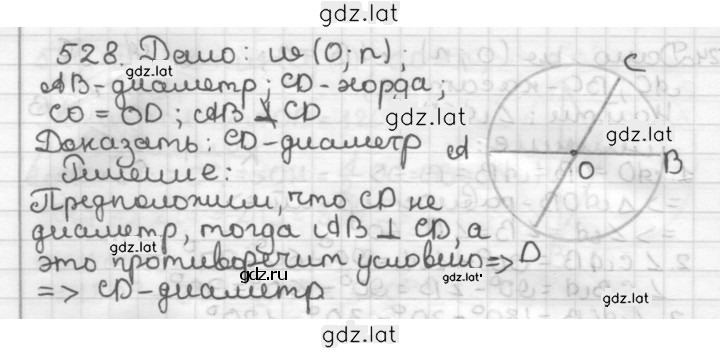 gdz.lat
528. Дано: w (O; r);
AB-диаметр; CD-хорда;
CO = OD; AB ⊥̸ CD
Доказать: CD-диаметр
Решение:
Предположим, что CD не
диаметр, тогда AB ⊥ CD, а
это противоречит условию=>
=> CD-диаметр
C
A
O
B
D
gdz.lat
gdz.lat
gdz.lat
gdz.lat
gdz.ru
gdz.lat
gdz.lat